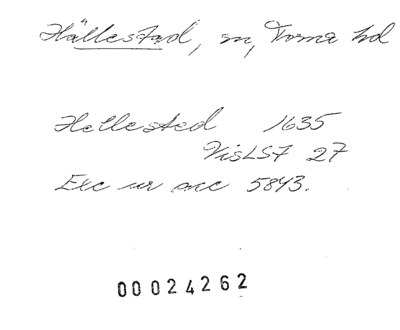 Hällestad, sn, Torna hd
Hellested 1635
VisLST 27
Exc ur acc 5843.
00024262